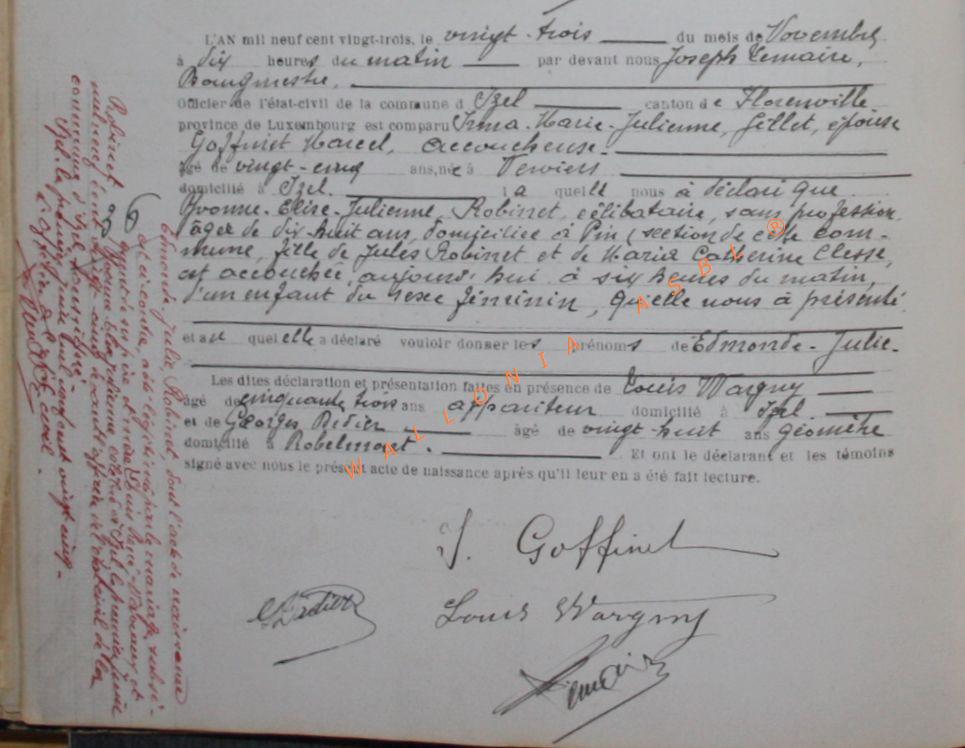 L'AN mil neuf cent vingt-trois, le vingt-trois du mois de Novembre
à dix heures du matin par devant nous Joseph Lemaire,
Bourgmestre,
Officier de l'état-civil de la commune d Izel canton de Florenville
province de Luxembourg est comparu Irma-Marie-Julienne, Gillet, épouse
Goffinet Marcel, accoucheuse.
âgé de vingt-cinq ans, née à Verviers
domicilié à Izel. laquelle nous à déclaré que
Yvonne-Elise-Julienne, Robinet, célibataire, sans profession
âgée de dix-huit ans, domiciliée à Pin (section de cette com-
mune, fille de Jules Robinet et de Maria Catherine Clesse,
est accouchée, aujourd'hui à six heures du matin,
d'un enfant du sexe féminin, qu'elle nous à présenté
et auquel elle a déclaré vouloir donner les prénoms de Edmonde-Julie.
Les dites déclaration et présentation faites en présence de Louis Wargny
âgé de cinquante trois ans appariteur domicilié à Izel.
et de Georges Didier âgé de vingt-huit ans géomètre
domicilié à Robelmont. Et ont le déclarant et les témoins
signé avec nous le présent acte de naissance après qu'il leur en a été fait lecture.
I. Goffinet
G Didier
Louis Wargny
Lemaire
36
Edmonde Julie, Robinet, dont l'acte de naissance
est ci-contre, a été légitimée par le mariage subsé-
quent de ses père et mère Louis
Yvonne Elise Julienne célébré à Izel le premier
Robinet
mil neuf cent vingt cinq. L'officier de l'état civil de la
commune d'Izel,
Izel, le premier mil neuf cent vingt cinq.
L'officier de l'état civil.
WALLONIA ASBL ®